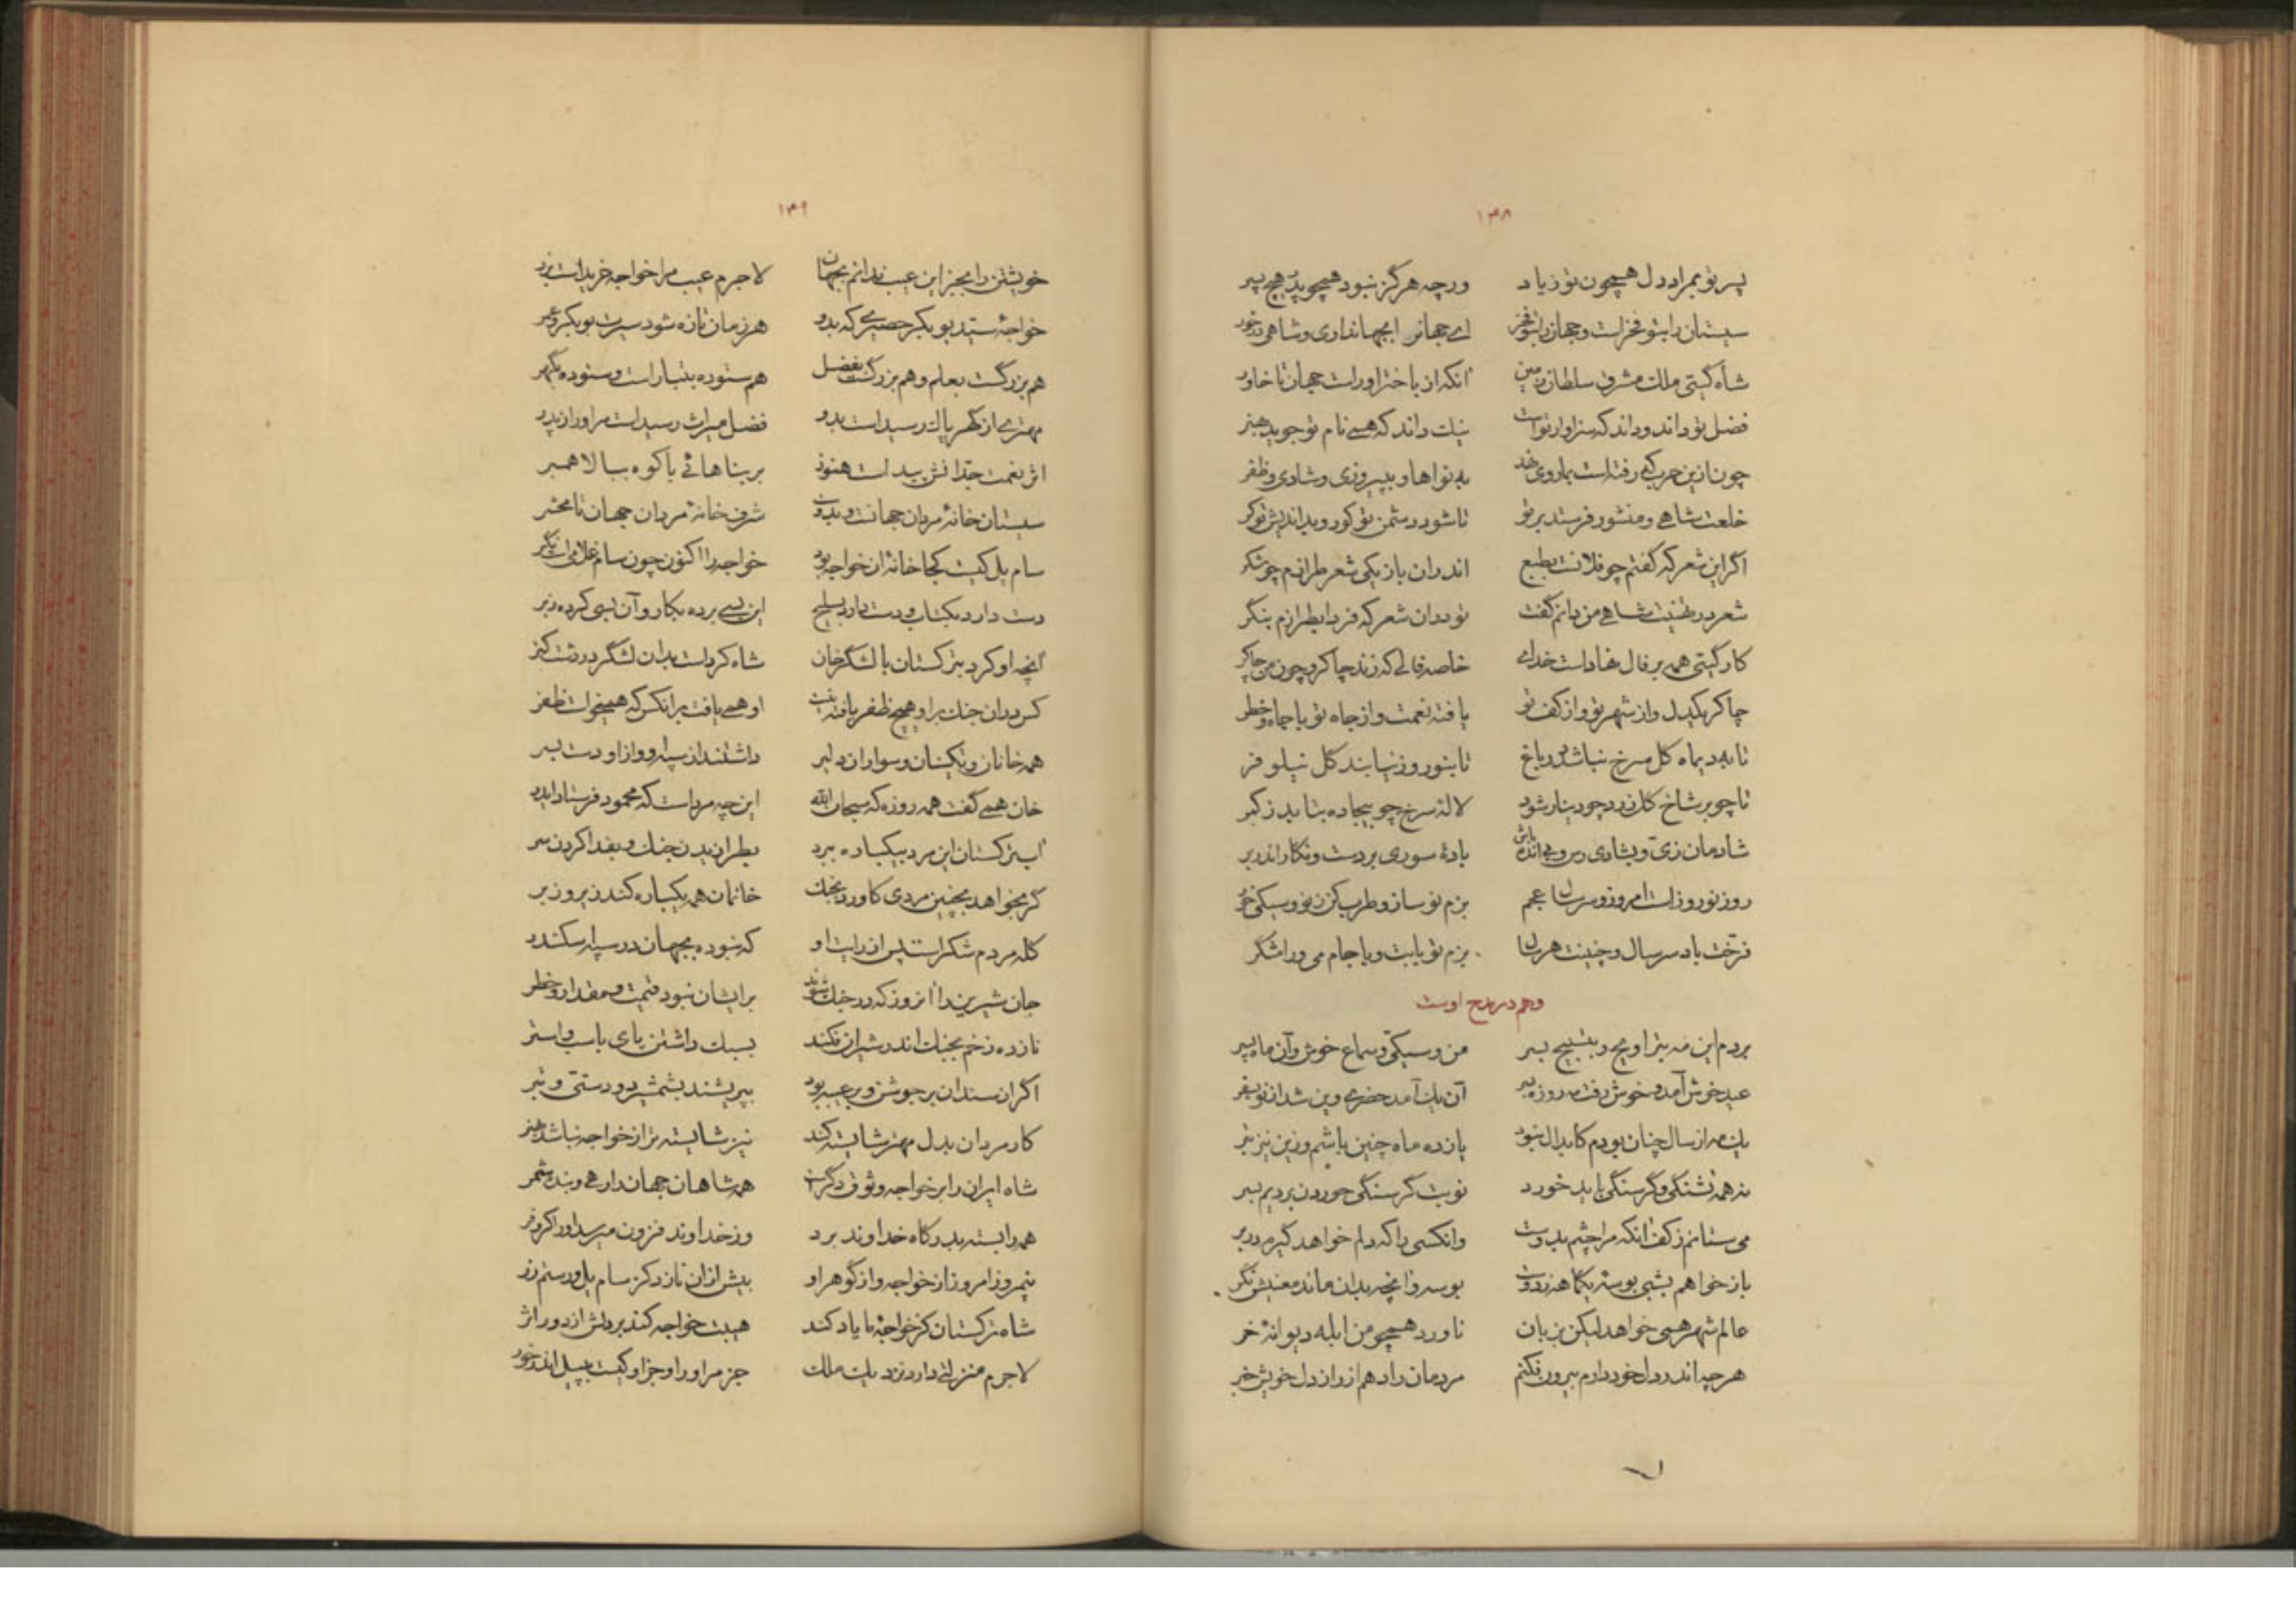 ۱۳۸
پسر تو بمراد دل همچون تو زیاد ورچه هرگز نبود هیچو پدر هیچ پسر
سیستان را بتو فخر است و جهان را بتو فخر ای جهانرا بجهانداری و شاهی در خور
شاه گیتی ملک مشرق سلطان زمین آنکه از باختر او راست جهان تا خاور
فضل تو داند و داند که سزاوار تو است نیک داند که همی نام تو جوید بهنر
چون ازین حرب که رفته است بما روی نهد به نواها و بپیروزی و شادی و ظفر
خلعت شاهی و منشور فرستد بر تو تا شود دشمن تو کور و بداندیش تو کر
اگر این شعر که گفتم چو فلانت بطبع اندران باز یکی شعر طرازم چو شکر
شعر در تهنیت شاهی من دانم گفت تو دران شعر که فردا بطرازم بنگر
کار گیتی همه بر فال نهاد است خدای خاصه فالی که زند چاکر و چون من چاکر
چاکر یکدل و از شهر تو و از کف تو یافته نعمت و از جاه تو با جاه و خطر
تا بدیماه گل سرخ نباشد در باغ تا بنوروز نیابند گل نیلوفر
تا چو بر شاخ گل زرد چو دینار شود لاله سرخ چو بیجاده بتابد ز کمر
شادمان زی و بشادی رس و بی انده باش باده سوری بر دست و نگار اندر بر
روز نوروز است امروز و سر سال عجم بزم نو ساز و طرب کن ز نو و سیکی خور
فرخت باد سر سال و چنینت هر سال بزم تو با بت و با جام می و رامشگر
وهم در مدح اوست
بردم این مه بتراویح و بتسبیح بسر من و سیکی و سماع خوش و آن ماه پسر
عید خوش آمد و خوش رفت مه روزه ببر آن یک آمد ز حضر وین شد از تو بسفر
یک مه از سال چنان بودم کابدال نبود یازده ماه چنین باشم وزین نیز بتر
نه همه تشنگی و گرسنگی باید خورد نوبت گرسنگی خوردن بردیم بسر
می ستانم ز کف انکه مرا چشم بدوست وانکسی را که دلم خواهد گیرم در بر
باز خواهم بشبی بوسه یکماهه ز دوست بوسه و آنچه بدان ماند معنیش نگر
عالم شهر همی خواهد لیکن بزبان ناورد همچو من ابله دیوانه خر
هرچه اندر دل خود دارم بیرون فکنم مردمان را دهم از راز دل خویش خبر
۱۳۹
خویشتن را بجز این عیب ندانم بجهان لاجرم عیب مرا خواجه خریدست بزر
خواجه سید بوبکر حصیری که بدو هر زمان تازه شود سیرت بوبکر و عمر
هم بزرگست بعلم و هم بزرگست بفضل هم ستوده بتبار است و ستوده بگهر
مهتری از گهر پاک رسید است بدو فضل میراث رسید است مر او را ز پدر
اثر نعمت جدانش پیداست هنوز بر بناهائی با کوه ببالا همبر
سیستان خانه مردان جهانست و بدوست شرف خانه مردان جهان تا محشر
سام یل کیست کجا خانه ان خواجه بود خواجه را اکنون چون سام غلامی است نگر
دست دارد بکتاب و دست دارد بسلیح این بسی برده بکار و آن بسی کرده زبر
آنچه او کرد بترکستان با لشگر خان شاه کردست بدان لشگر در دشت کتر
کس دران جنگ برو هیچ ظفر یافته نیست او همی یافت بر انکس که همیخواست ظفر
همه خانان و تکینان و سواران دلیر داشتند از سپه او و از او دست بسر
خان همی گفت همه روزه که سبحان الله این چه مرد است که محمود فرستاد ایدر
ار بترکستان این مرد بیکباره برد بطرازیدن جنگ و بفدا کردن سر
گر بخواهد بچنین مردی کاورد بجنگ خانمان همه یکباره کند زیر و زبر
گله مردم شگر است پس از رایت او که نبوده بجهان در سپه اسکندر
جان شیرین را انروز که در جنگ شوند بر ایشان نبود قیمت و مقدار و خطر
نازده زخم بجنگ اندر شیران فکنند بسبک داشتن پای باسب و استر
اگر ان سندان بر جوشن و بر عیبه بود ببریشند بشمشیر دو دستی و تبر
کار مردان بدل مهتر شایسته کند نیز شایسته تر از خواجه نباشد مهتر
شاه ایران را بر خواجه وثوق دگر است همه شاهان جهان را رهی و بنده شمر
همه را بسته بدرگاه خداوند برد وز خداوند فزون میرسد او را کر و فر
نیمروز امروز از خواجه و از گوهر او بیش از ان نازد کز سام یل و رستم زر
شاه ترکستان کز خواجه ما یاد کند هیبت خواجه کند بر دلش از دور اثر
لاجرم منزلتی دارد نزدیک ملک جز مر او را و جز او کیست به پیل اندر خور